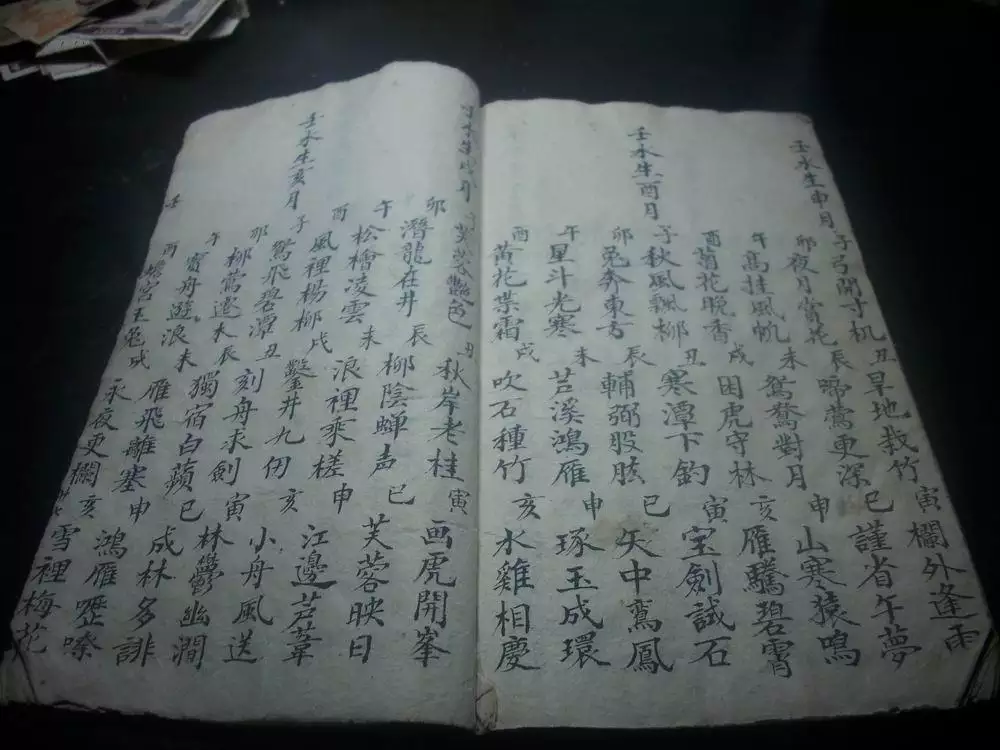 壬水生申月
子弓開寸机 丑旱地栽竹 寅欄外逢雨
卯夜月賞花 辰啼鶯更深 巳謹省午夢
午高挂風帆 未鴛鴦對月 申山寒猿鳴
酉菊花晚香 戌困虎守林 亥雁騰碧霄
壬水生酉月
子秋風飄柳 丑寒潭下釣 寅宝劍試石
卯兔奔東方 辰輔弼股肱 巳矢中鸞鳳
午星斗光寒 未芦溪鴻雁 申琢玉成環
酉黃花業霜 戌吹石種竹 亥水雞相慶
壬水生戌月
芙蓉艷色 丑秋岸老桂 寅画虎開峯
卯潛龍在井 辰柳陰蟬声 巳芙蓉映日
午松檜凌雲 未浪裡乘槎 申江邊芦葦
酉風裡楊柳 戌鑿井九仞 亥小舟風送
壬水生亥月
子鴛飛碧潭 丑刻舟求劍 寅林鬱幽澗
卯柳鶯遷木 辰獨宿白蘋 巳成林多誹
午寶舟遊浪 未雁飛離塞 申鴻雁嚦嗦
酉蟾宮玉兔 戌永夜更欄 亥雪裡梅花
壬